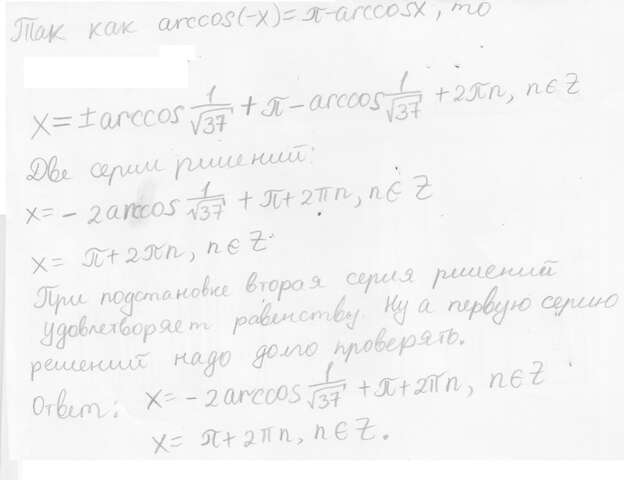 Так как arccos(-x)=π-arccosx, то
x=±arccos 1/√37 + π - arccos 1/√37 + 2πn, n∈Z
Две серии решений:
x= - 2arccos 1/√37 + π + 2πn, n∈Z
x= π+2πn, n∈Z.
При подстановке вторая серия решений
удовлетворяет равенству. Ну а первую серию
решений надо долго проверять.
Ответ: x= - 2arccos 1/√37 + π + 2πn, n∈Z
x= π+2πn, n∈Z.